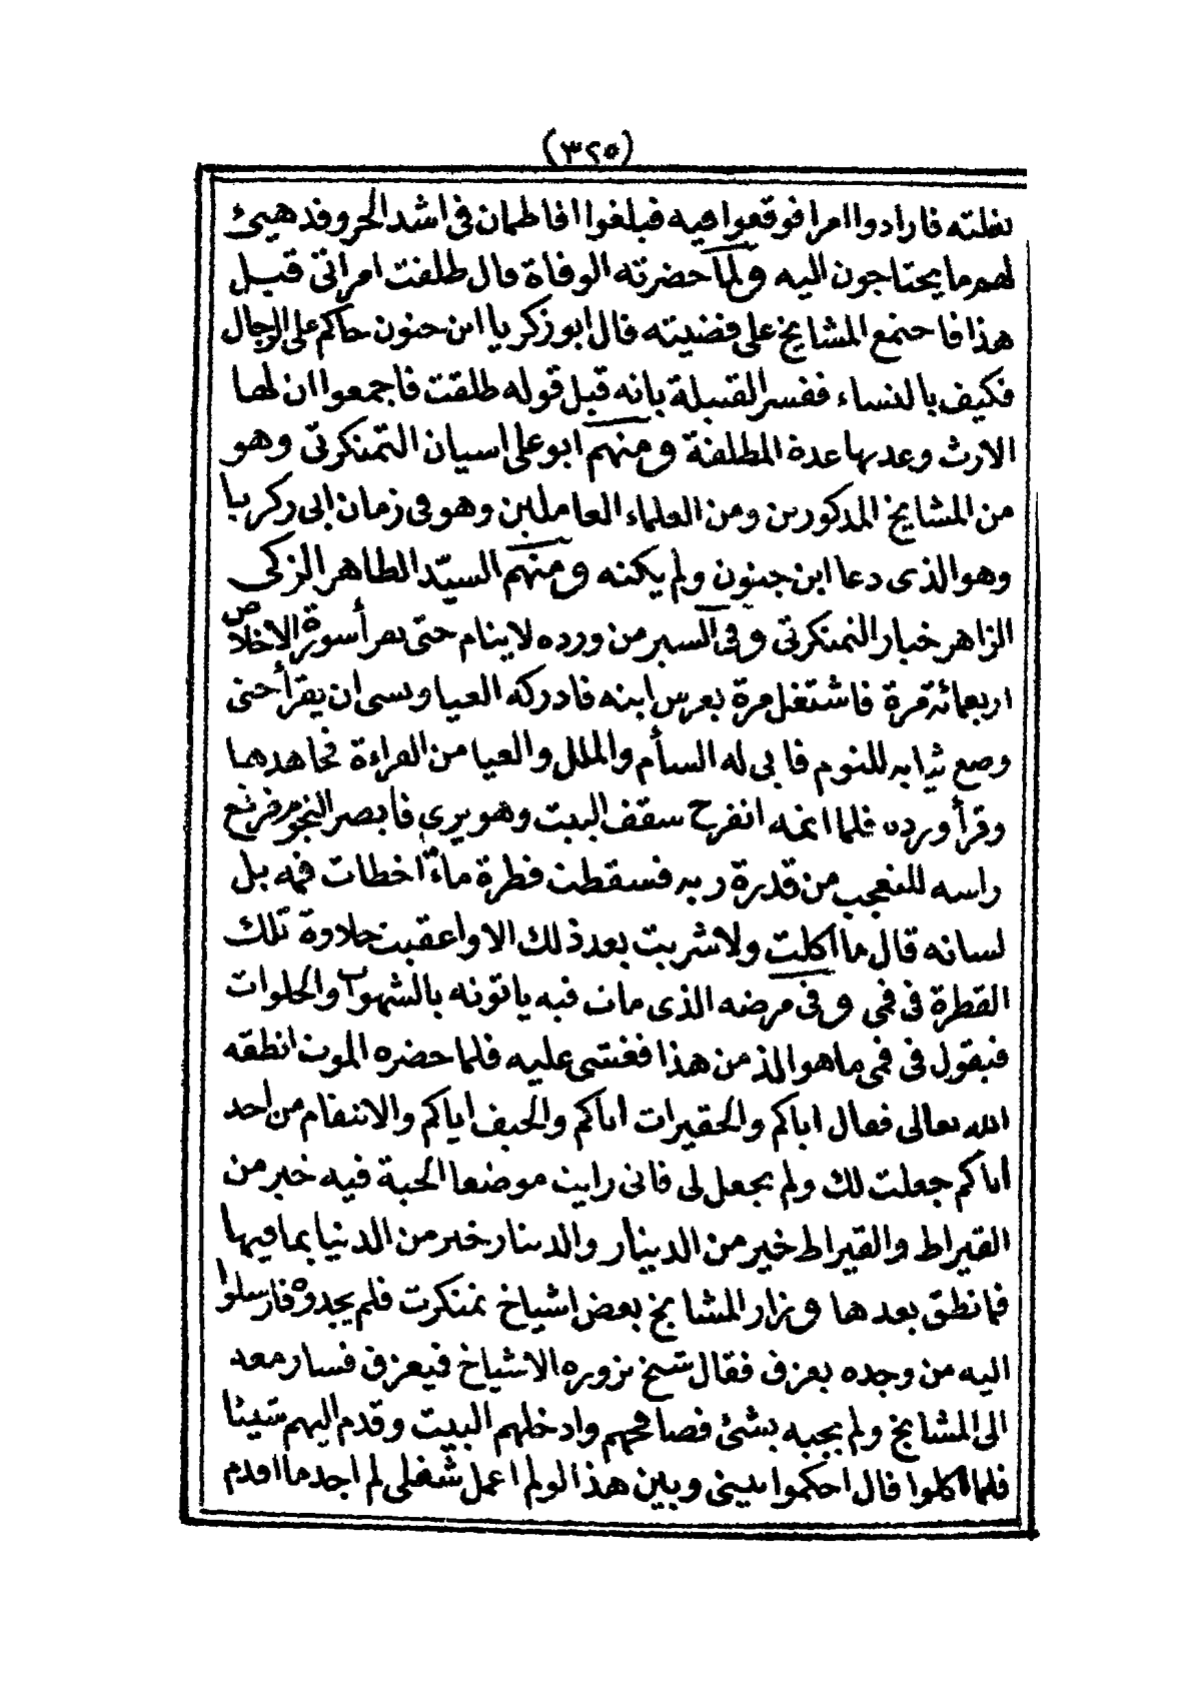 (٣٢٥)
بغلته فارادوا امرا فوقعوا فيه فبلغوا افاطمان فى اشد الحر وقد هيئ
لهم ما يحتاجون اليه ولما حضرته الوفاة قال طلقت امراتى قبل
هذا فاجتمع المشايخ على قضيته قال ابو زكريا ابن جنون حاكم على الرجال
فكيف بالنساء ففسر القبيلة بانه قبل قوله طلقت فاجمعوا ان لها
الارث وعدتها عدة المطلقة ومنهم ابو على اسيان التمنكرتى وهو
من المشايخ المذكورين ومن العلماء العاملين وهو فى زمان ابى زكريا
وهو الذى دعا ابن جنون ولم يكنه ومنهم السيّد الطاهر الزكى
الزاهر خيار التمنكرتى وفى السير من ورده لا ينام حتى يقرأ سورة الاخلاص
اربعمائة مرة فاشتغل مرة بعرس ابنه فادركه العيا ونسى ان يقرأ حتى
وضع ثيابه للنوم فابى له السأم والملل والعيا من القراءة فجاهدهما
وقرأ ورده فلما اتمه انفرج سقف البيت وهو يرى فابصر النجوم فرفع
راسه للتعجب من قدرة ربه فسقطت قطرة ماء اخطات فمه بل
لسانه قال ما اكلت ولا شربت بعد ذلك الا واعقبت حلاوة تلك
القطرة فى فمى وفى مرضه الذى مات فيه ياتونه بالشهوات والحلوات
فيقول فى فمى ما هو الذ من هذا فغشى عليه فلما حضره الموت انطقه
الله تعالى فقال اياكم والحقيرات اياكم والحيف اياكم والانتقام من احد
اياكم جعلت لك ولم يجعل لى فانى رايت موضعا الحبة فيه خير من
القيراط والقيراط خير من الدينار والدينار خير من الدنيا بما فيها
فما نطق بعدها وزار المشايخ بعض اشياخ تمنكرت فلم يجدوه فارسلوا
اليه من وجده يعزف فقال شيخ تزوره الاشياخ فيعزف فسار معه
الى المشايخ ولم يجبه بشئ فصافحهم وادخلهم البيت وقدم اليهم شيئا
فلما اكلوا قال احكموا بينى وبين هذا لو لم اعمل شغلى لم اجد ما اقدم